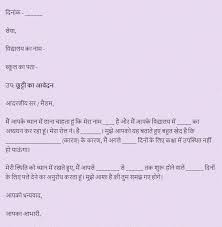 दिनांक - ______
सेवा,
विद्यालय का नाम -
स्कूल का पता -
उप: छुट्टी का आवेदन
आदरणीय सर / मैडम,
मैं आपके ध्यान में लाना चाहता हूं कि मेरा नाम ____ है और मैं आपके विद्यालय में _____ का
अध्ययन कर रहा हूं। मेरा रोल नं। है ______। मुझे आपको यह बताते हुए बहुत खेद है कि
______________ (कारण) के कारण, मैं अगले _____ दिनों के लिए कक्षा में उपस्थित नहीं
हो पाऊंगा।
मेरी स्थिति को ध्यान में रखते हुए, मैं आपसे _______ से ______ तक शुरू होने वाले ______ दिनों
के लिए पत्ते देने का अनुरोध करता हूं। मुझे आशा है की तुम समझ गए होगे।
आपको धन्यवाद,
आपका आभारी.